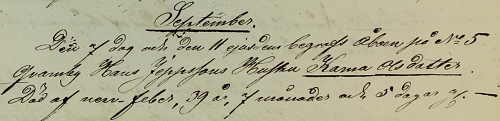 September.
Den 7 dag och den 11 ejusdem begrofs Åboen på No 5
Qvarnby Hans Jeppssons Hustru Kama Olsdatter.
Död af nerv-feber, 39 år, 7 månader och 5 dagar g. —